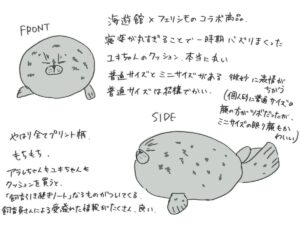 FRONT
海遊館×フェリシモのコラボ商品.
寝姿が丸すぎることで一時期バズりまくった
ユキちゃんのクッション. 本当に丸い
普通サイズとミニサイズがある
微妙に表情がちがう
普通サイズは結構でかい.
(個人的に普通サイズの
顔の方がツボだったが、
ミニサイズの眠り顔も
かわいい)
やはり全てプリント柄.
もちもち.
アラレちゃんもユキちゃんも
クッションを買うと、
「飼育引き継ぎノート」なるものがついてくる.
飼育員さんによる愛溢れた情報がたくさん. 良い.
SIDE